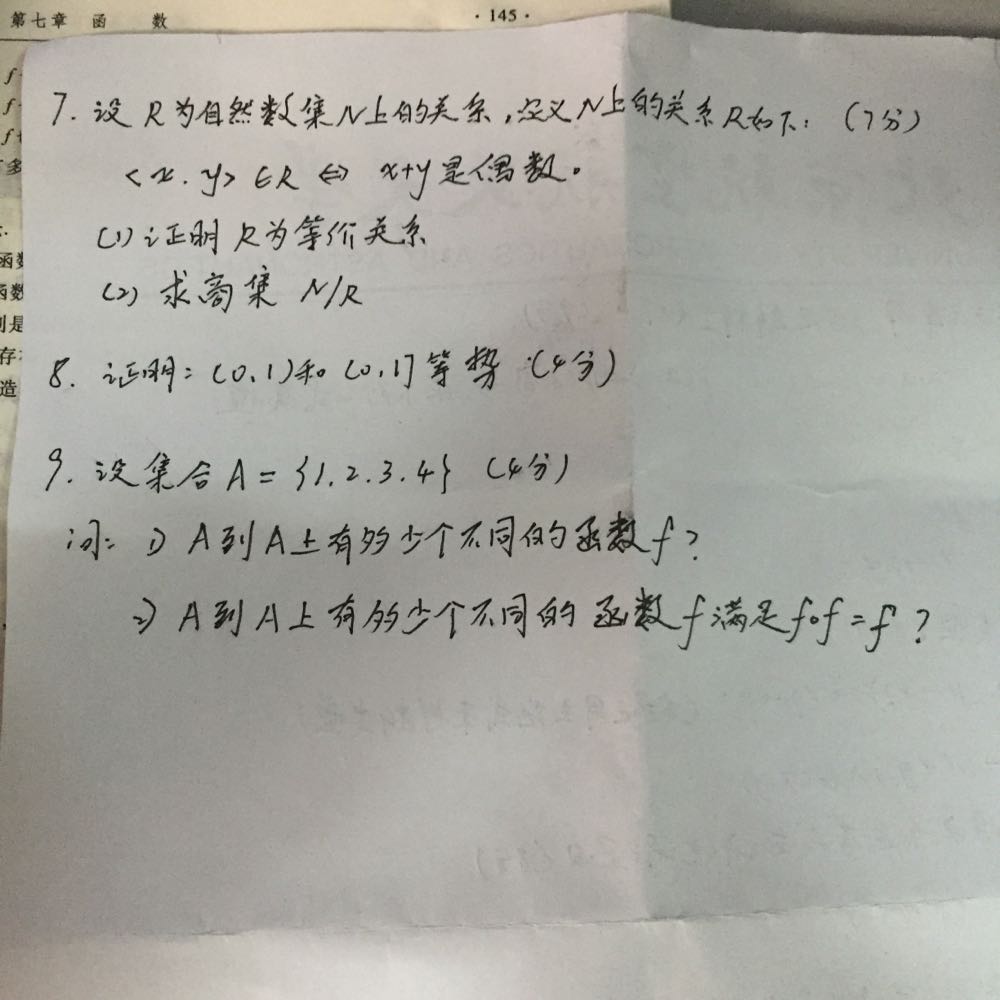 第七章 函 数 · 145 ·
7. 设 R为自然数集N上的关系,定义N上的关系R如下: (7分)
<x.y> ∈R ⇔ x+y是偶数。
(1) 证明 R为等价关系
(2) 求商集 N/R
8. 证明: (0,1)和 (0,1] 等势 (4分)
9. 设集合 A = {1.2.3.4} (4分)
问: 1) A到A上有多少个不同的函数f?
2) A到A上有多少个不同的函数f满足f∘f=f?
函数
函数
则是
存
造